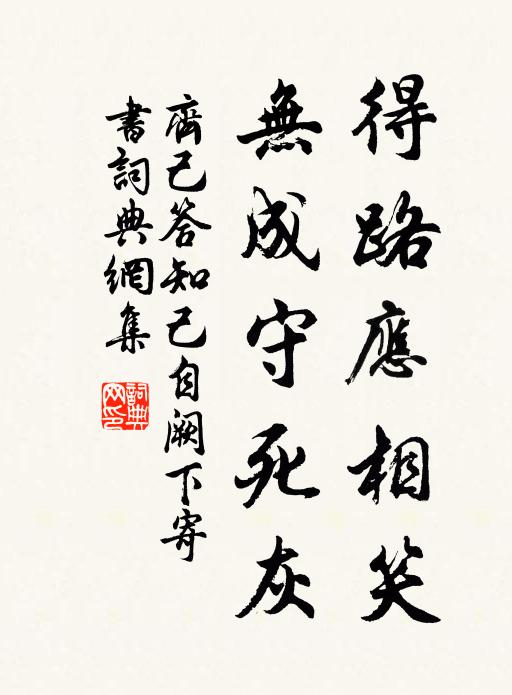 得路應相笑
無成守死灰
齊己答知己自闕下寄
書詞典網集
詞典
网印